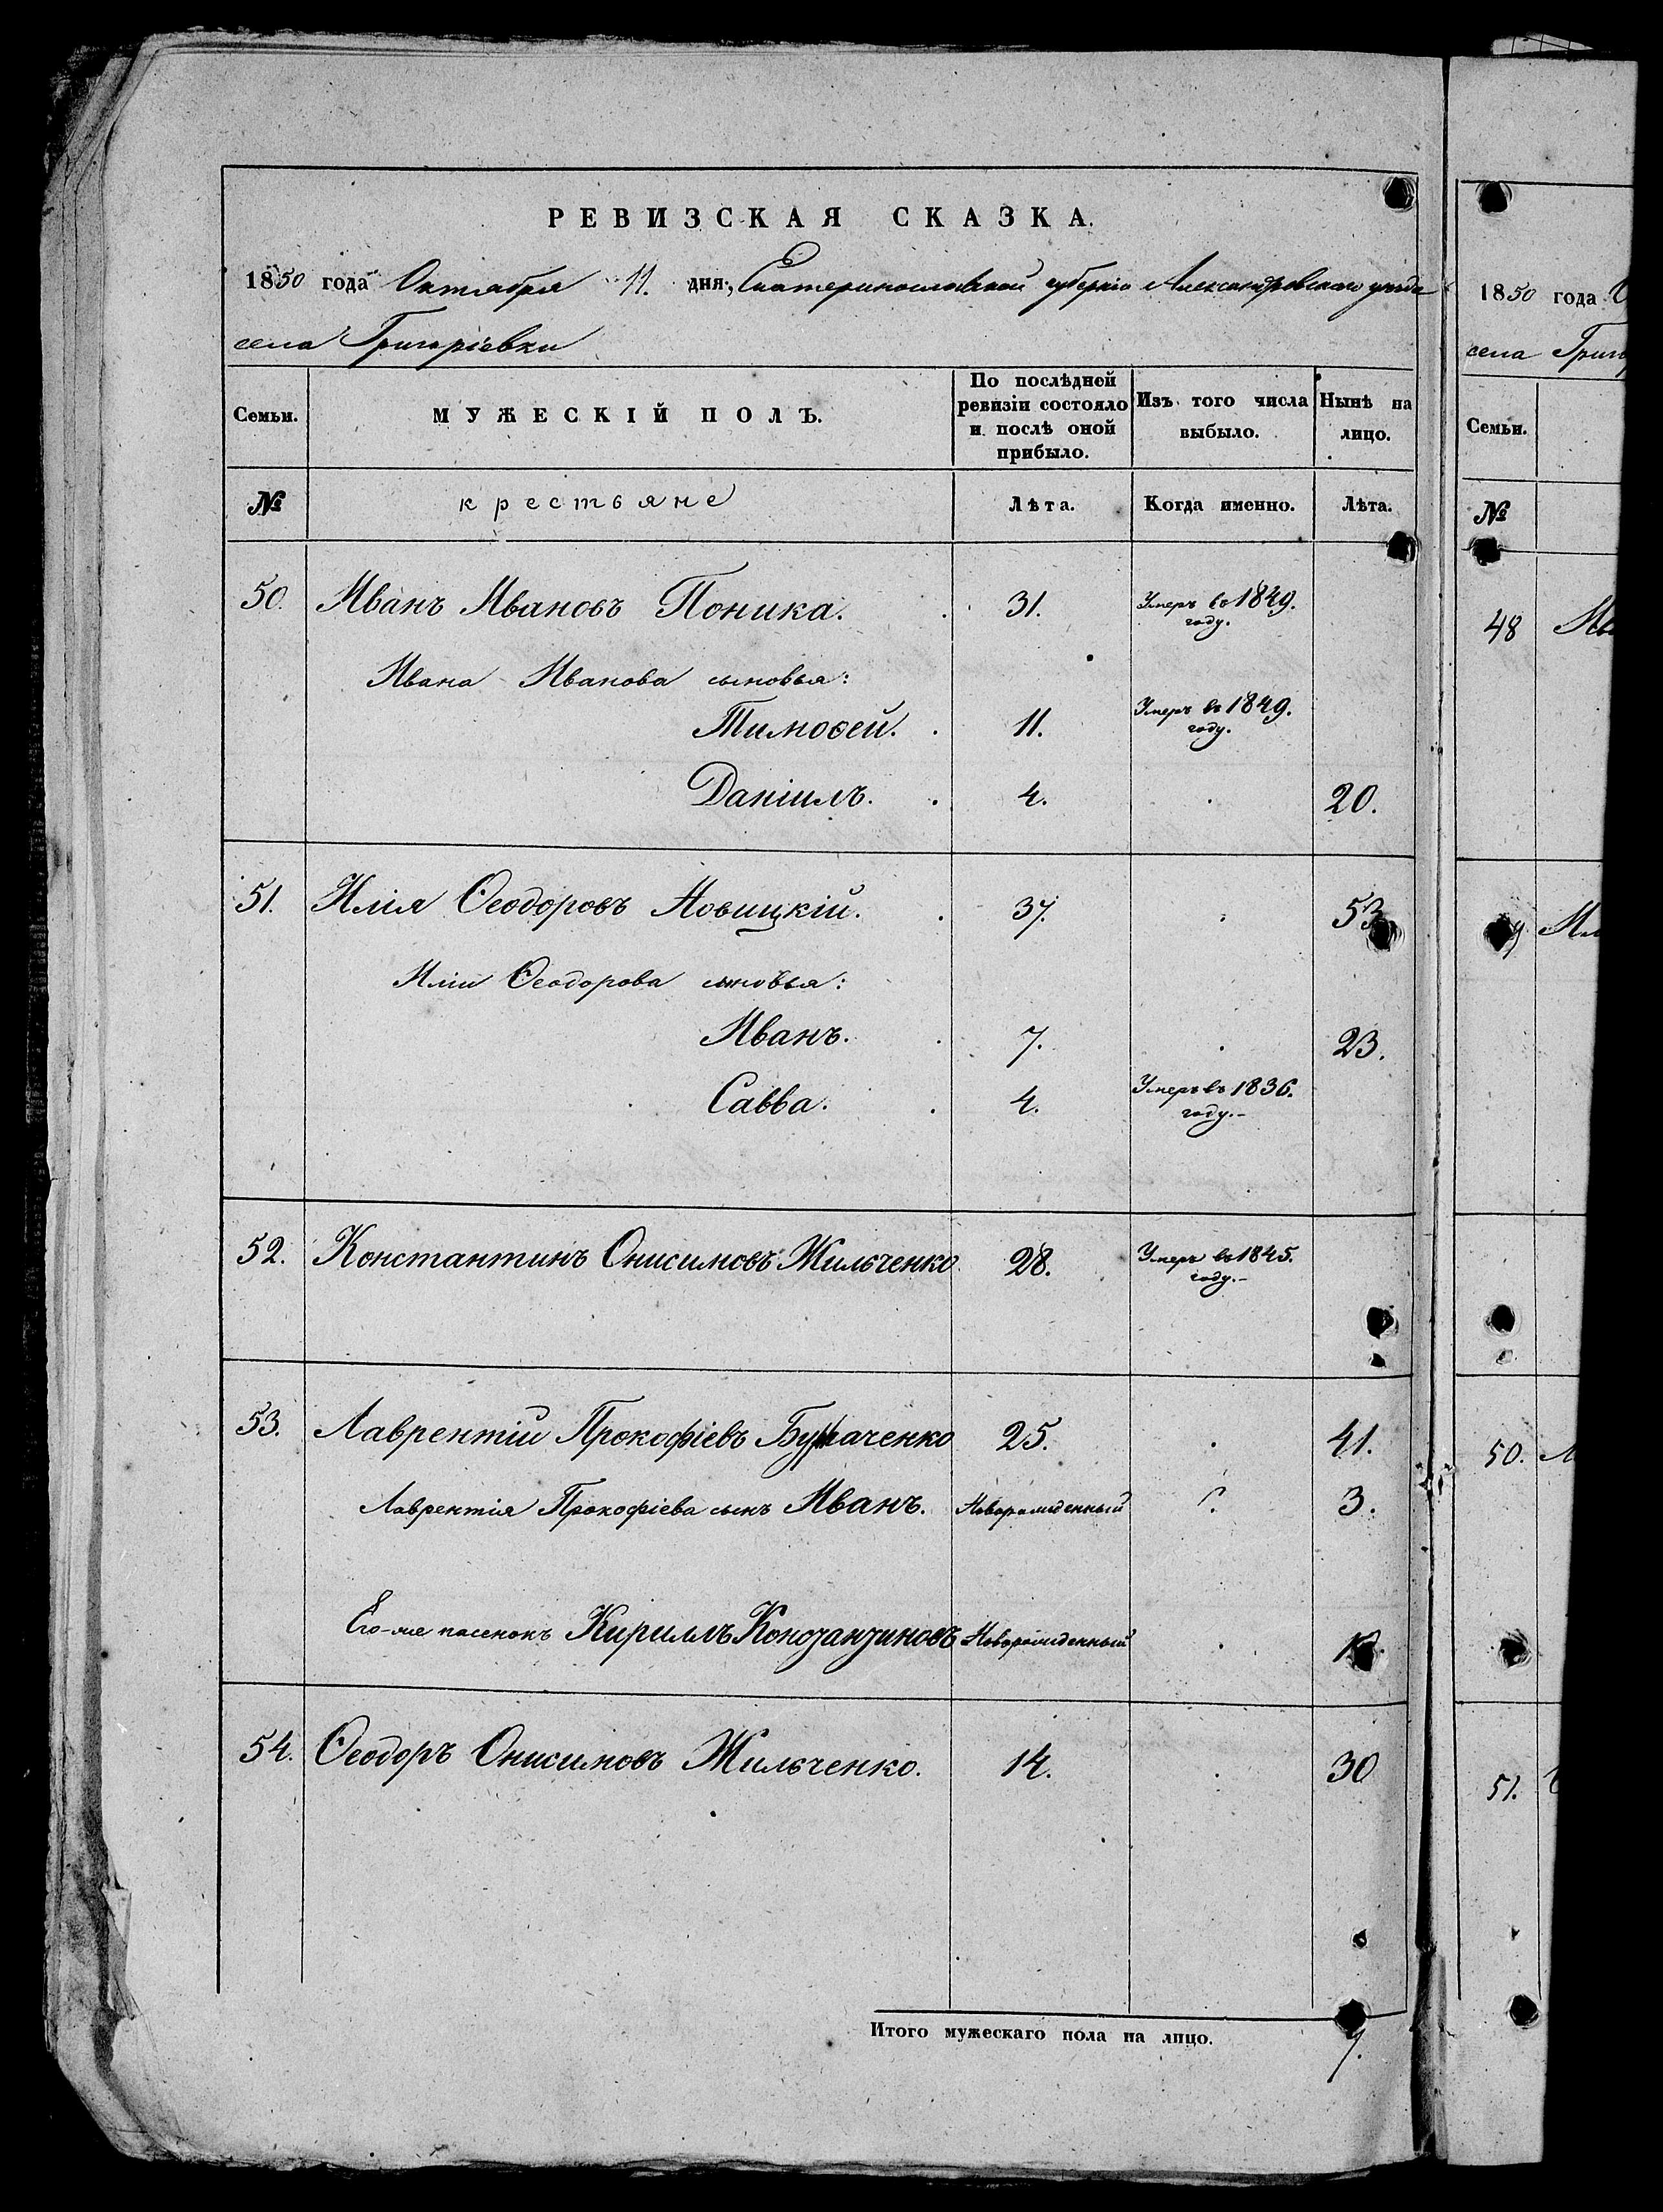 РЕВИЗСКАЯ СКАЗКА.
1850 года Октября 11. дня, Екатеринославской губернiи Александровскаго уезда
села Григорiевки
Семьи. МУЖЕСКIЙ ПОЛЪ. По послѣдней ревизiи состояло и послѣ оной прибыло. Изъ того числа выбыло. Нынѣ на лицо.
№ крестьяне Лѣта. Когда именно. Лѣта.
50. Иванъ Ивановъ Поника. 31. Умеръ въ 1849. году.
Ивана Иванова сыновья:
Тимоѳей. 11. Умеръ въ 1849. году.
Данiилъ. 4. 20.
51. Илiя Ѳеодоровъ Новицкiй. 37. 53
Илiи Ѳеодорова сыновья:
Иванъ. 7. 23.
Савва. 4. Умеръ въ 1836. году.-
52. Константинъ Онисимовъ Жильченко 28. Умеръ въ 1845. году.-
53. Лаврентiй Прокофiевъ 25. 41.
Лаврентiя Прокофiева сынъ Иванъ. Новорожденный 3.
Его-же пасенокъ Кириллъ Константиновъ Новорожденный
54. Ѳеодоръ Онисимовъ Жильченко. 14. 30
Итого мужескаго пола на лицо. 7.
1850 года
села
Семьи.
№
48
50.
51.